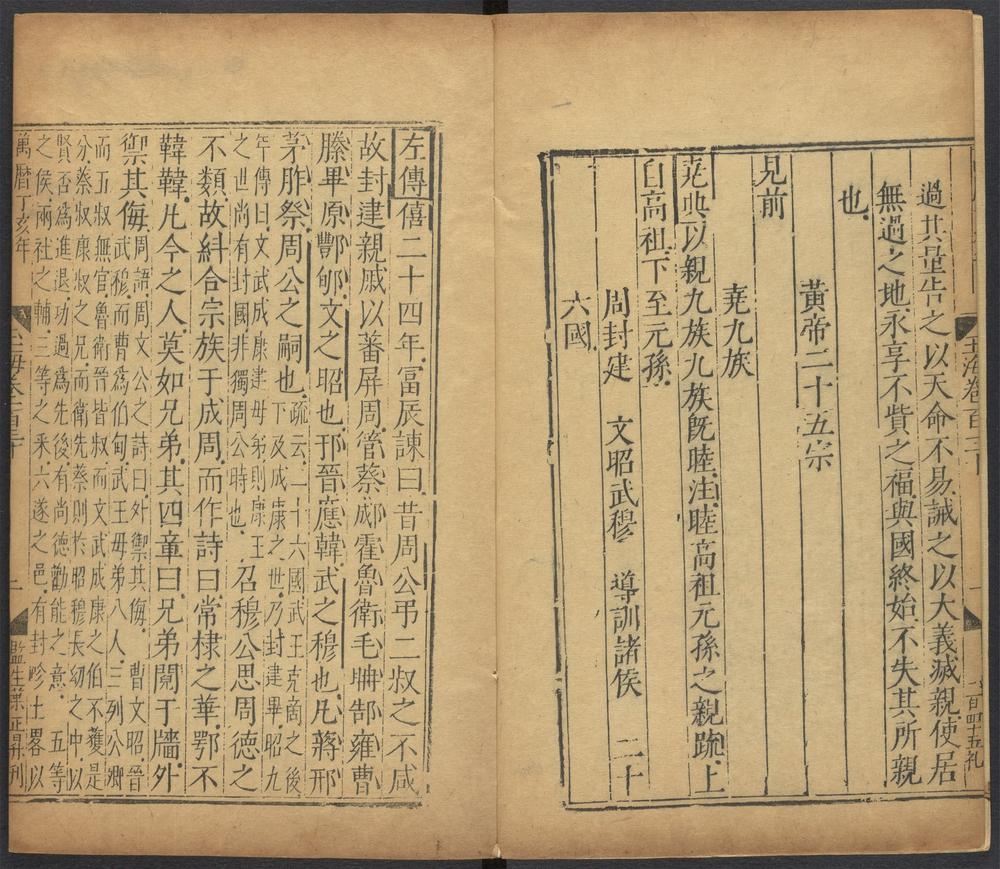 玉海卷百三十
一
一百四十五礼
過其量告之以天命不易誡之以大義滅親使居
無過之地永享不貲之福與國終始不失其所親
也
黃帝二十五宗
見前
堯九族
堯典以親九族九族既睦注睦高祖元孫之親䟽上
自高祖下至元孫
周封建 文昭武穆 導訓諸侯 二十
六國
左傳僖二十四年冨辰諫曰昔周公弔二叔之不咸
故封建親戚以蕃屏周管蔡郕霍魯衛毛聃郜雍曹
滕畢原酆郇文之昭也邘晉應韓武之穆也凡蔣邢
茅胙祭周公之嗣也疏云二十六國武王克商之後
下及成康之世乃封建畢昭九
年傳曰文武成康建毋弟則康王
之世尚有封國非獨周公時也召穆公思周德之
不類故糾合宗族于成周而作詩曰常棣之華鄂不
韡韡凡今之人莫如兄弟其四章曰兄弟鬩于牆外
禦其侮周語周文公之詩曰外禦其侮 曹文昭晉
武穆而曹爲伯甸武王毋弟八人三列公卿
而五叔無官魯衛晉皆叔而文武成康之伯不獲是
分蔡叔康叔之兄而衛先蔡則於昭穆長幼之中以
賢否爲進退功過爲先後有尚德勸能之意 五等
之侯兩社之輔三等之采六遂之邑有封畛土畧以
萬曆丁亥年
海卷百三十
二
監生葉正昇刊